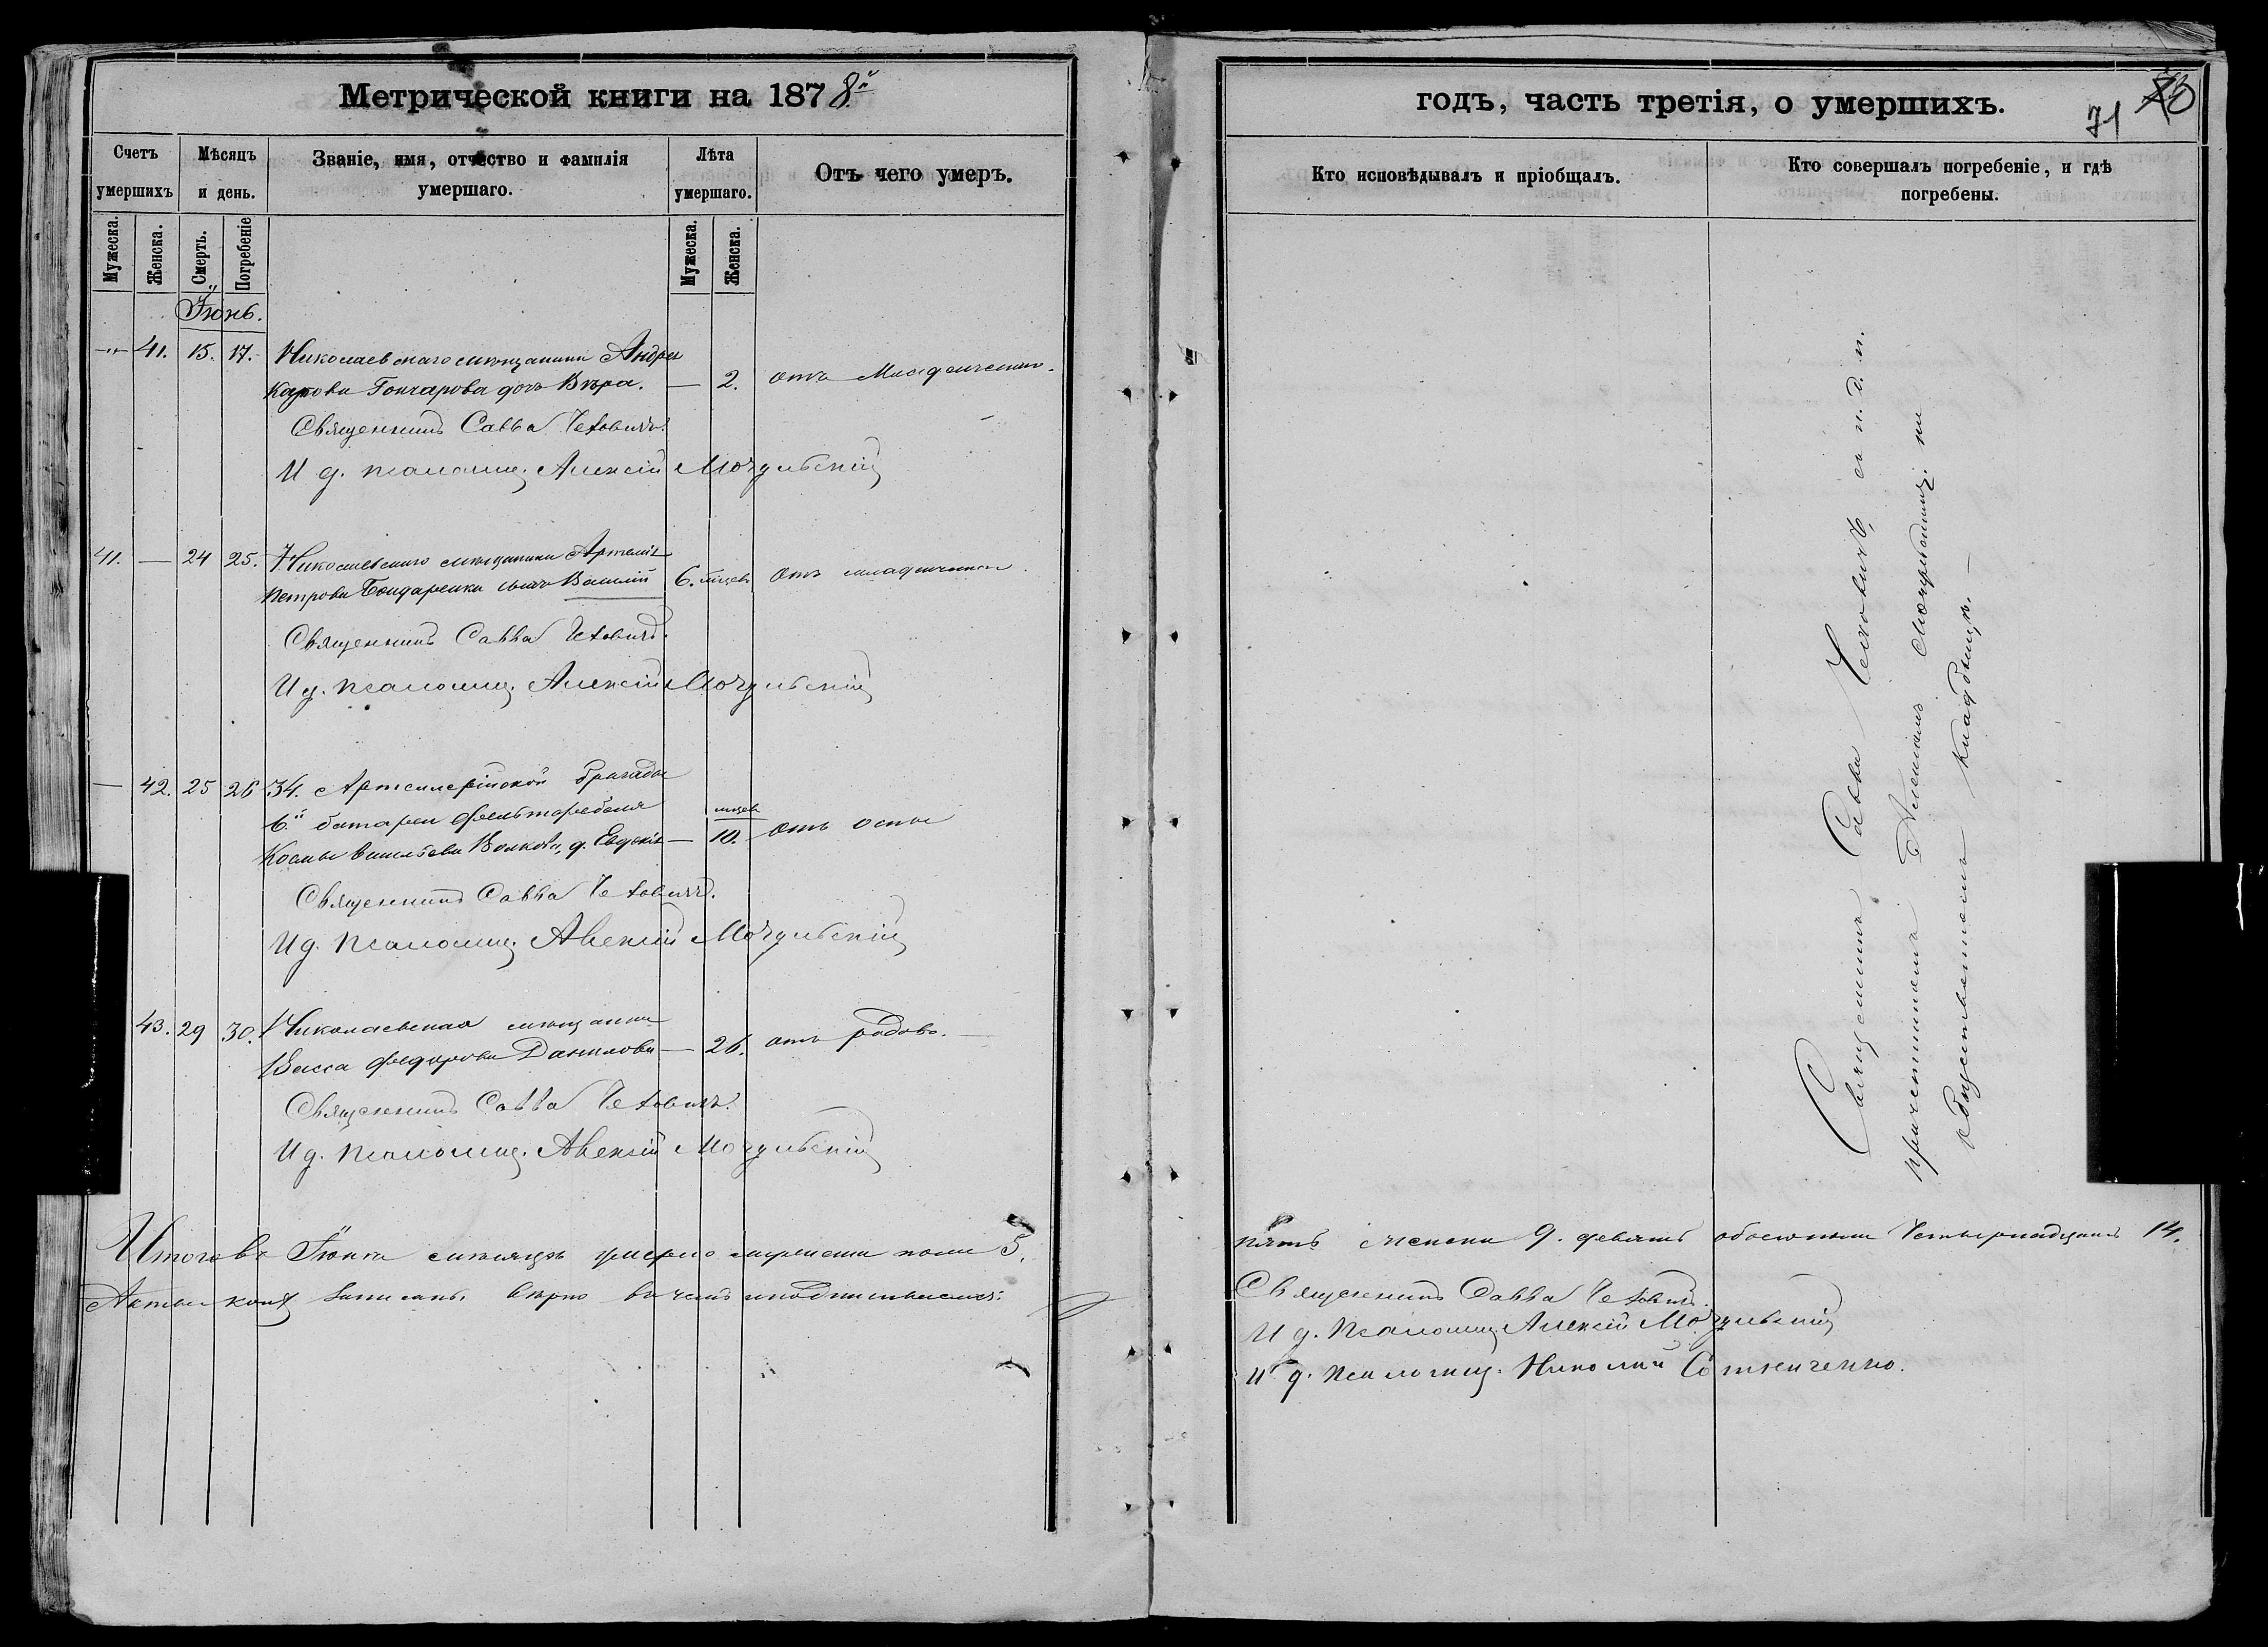 Метрической книги на 1878й
Счетъ умершихъ
Мѣсяцъ и день.
Званіе, имя, отчество и фамилія умершаго.
Лѣта умершаго.
Отъ чего умеръ.
Мужеска. Женска. Смерть. Погребеніе Мужеска. Женска.
Іюнь.
-"- 41. 15. 17. Николаевскаго мѣщанина Андрея
Гончарова дочь Вѣра. — 2. отъ младенческой.
Священникъ Савва Чехович
И д. псаломщ. Алексій Мочульскій
41. — 24 25. Николаевскаго мѣщанина Артемія
Петрова Бондаренка сынъ Василій 6. мѣсяц. отъ младенческой.
Священникъ Савва Чеховичъ.
И д. псаломщ. Алексій Мочульскій
— 42. 25 26 34. Артиллерійской бригады
6й батареи фельдфебеля
Космы Васильева Волкова, д. Евдокія — мѣсяц. 10. отъ оспы
Священникъ Савва Чеховичъ.
И д. псаломщ. Алексій Мочульскій
43. 29 30. Николаевская мѣщанка
Васса Федорова Данилова — 26. отъ родовъ. —
Священникъ Савва Чеховичъ.
И д. псаломщ. Алексій Мочульскій
Итого въ Іюнѣ мѣсяцѣ умерло мужеска пола 5,
Акты записаны вѣрно въ чемъ и подписываемся:
годъ, часть третія, о умершихъ.
71
Кто исповѣдывалъ и пріобщалъ.
Кто совершалъ погребеніе, и гдѣ погребены.
Священникъ Савва Чеховичъ, съ и. д. п.
причетникомъ Алексіемъ Мочульскимъ на
общественномъ кладбищѣ. —
пять женска 9. девять обоего пола четырнадцать 14.
Священникъ Савва Чеховичъ.
И д. Псаломщ. Алексій Мочульскій
И д. Псаломщ. Николай